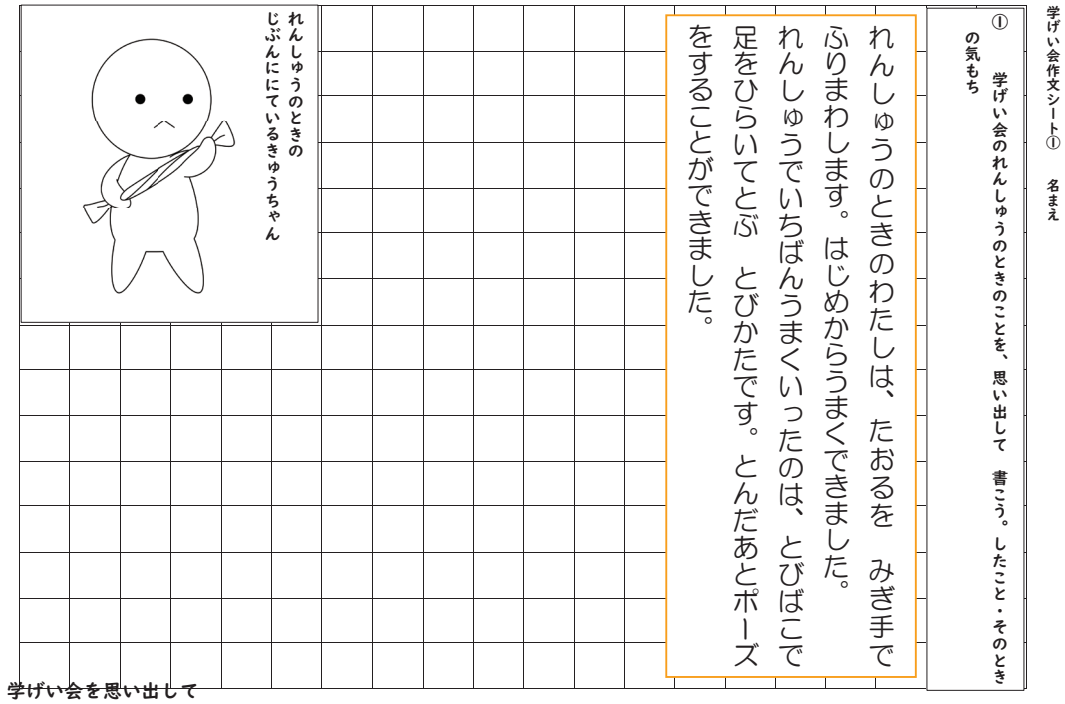 学げい会作文シート① 名まえ
① 学げい会のれんしゅうのときのことを、思い出して 書こう。したこと・そのとき
の気もち
れんしゅうのときのわたしは、たおるを みぎ手で
ふりまわします。はじめからうまくできました。
れんしゅうでいちばんうまくいったのは、とびばこで
足をひらいてとぶ とびかたです。とんだあとポーズ
をすることができました。
れんしゅうのときの
じぶんににているきゅうちゃん
学げい会を思い出して